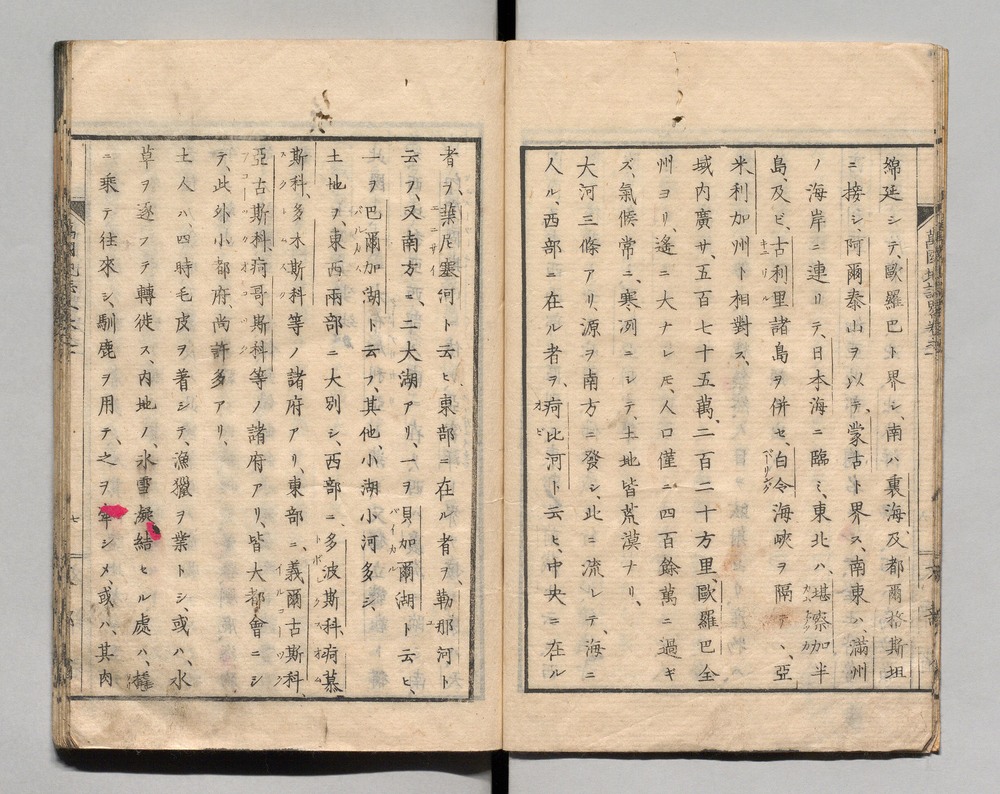 綿延シテ、歐羅巴ト界シ、南ハ裏海、及都爾格斯坦
ニ接シ、阿爾泰山ヲ以テ、蒙古ト界ス、南東ハ滿州
ノ海岸ニ連リテ、日本海ニ臨ミ、東北ハ、堪察加半
島、及ビ、古利里諸島ヲ併セ、白令海峽ヲ隔テヽ、亞
米利加州ト相對ス、
域内廣サ、五百七十五萬、二百二十方里、歐羅巴全
州ヨリ、遙ニ大ナレ𪜈、人口僅ニ四百餘萬ニ過キ
ズ、氣候常ニ、寒冽ニシテ、土地皆荒漠ナリ、
大河三條アリ、源ヲ南方ニ發シ、北ニ流レテ、海ニ
入ル、西部ニ在ル者ヲ、疴比河ト云ヒ、中央ニ在ル
者ヲ、葉尼塞河ト云ヒ、東部ニ在ル者ヲ、勒那河ト
云フ、又南方ニ、二大湖アリ、一ヲ貝加爾湖ト云ヒ、
一ヲ巴爾加湖ト云フ、其他、小湖小河多シ、
土地ヲ東西兩部ニ大別シ、西部ニ、多波斯科、疴慕
斯科、多木斯科等ノ諸府アリ、東部ニ、義爾古斯科、
亞古斯科、疴哥斯科等ノ諸府アリ、皆大都會ニシ
テ、此外小都府、尚許多アリ、
土人ハ、四時毛皮ヲ着シテ、漁獵ヲ業トシ、或ハ、水
草ヲ逐フテ轉徙ス、内地ノ、氷雪凝結セル處ハ、橇
ニ乘テ往來シ、馴鹿ヲ用テ、之ヲ牽シメ、或ハ、其肉